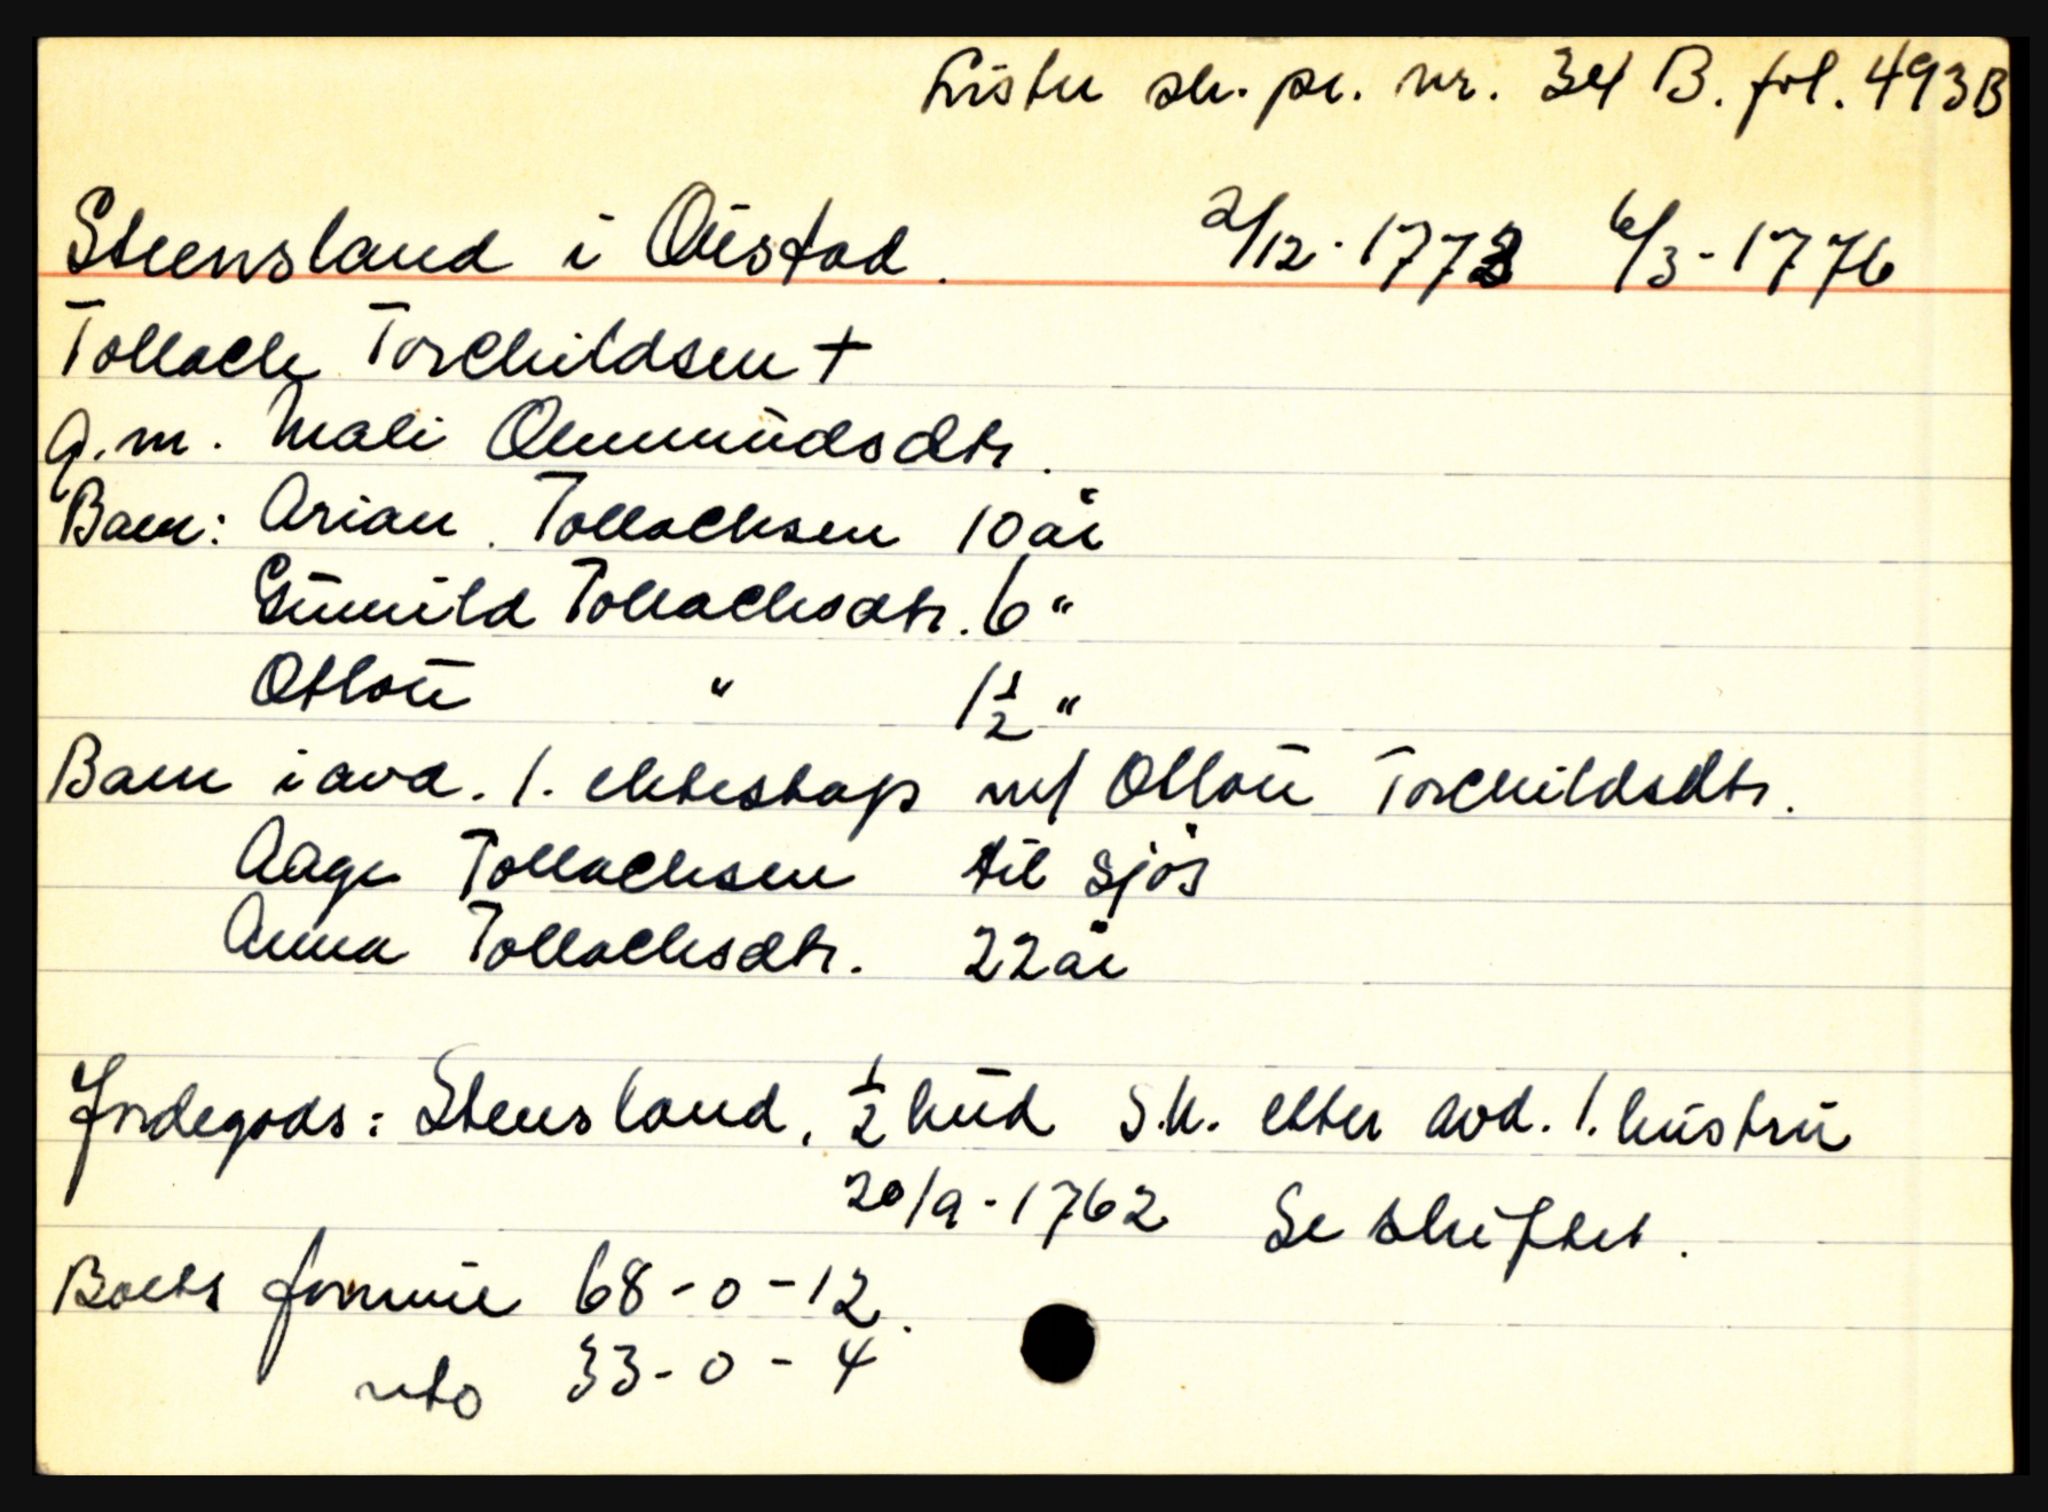 Lister sk. pr. nr. 34 B. fol. 493B
Steensland i Qvistad. 2/12-1773 6/3-1776
Tollach Torchildsen +
g.m. Mali Ommundsdtr.
Barn: Arian Tollachsen 10 år
Gunnild Tollachsdtr. 6 "
Otlou " 1 1/2 "
Barn i avd. 1. ekteskap m/ Ollou Torchildsdtr.
Aage Tollachsen til sjøs
Anna Tollachsdtr. 22 år
Jordegods: Stensland, 1/2 hud S.k. etter avd. 1. hustru
20/9-1762 Se skiftet.
Boets formue 68-0-12.
nto 33-0-4